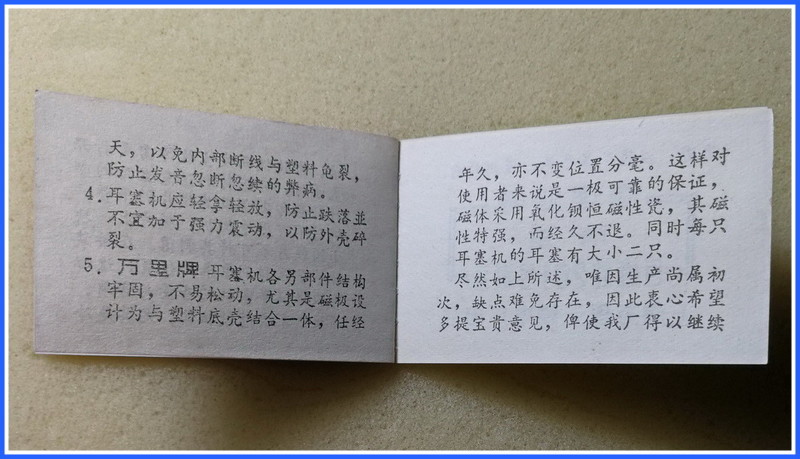 天，以免内部断线与塑料龟裂，
防止发音忽断忽续的弊病。
4. 耳塞机应轻拿轻放，防止跌落並
不宜加于强力震动，以防外壳碎
裂。
5. 万里牌 耳塞机各另部件结构
牢固，不易松动，尤其是磁极设
计为与塑料底壳结合一体，任经
年久，亦不变位置分毫。这样对
使用者来说是一极可靠的保证，
磁体采用氧化钡恒磁性瓷，其磁
性特强，而经久不退。同时每只
耳塞机的耳塞有大小二只。
尽然如上所述，唯因生产尚属初
次，缺点难免存在，因此衷心希望
多提宝贵意见，俾使我厂得以继续